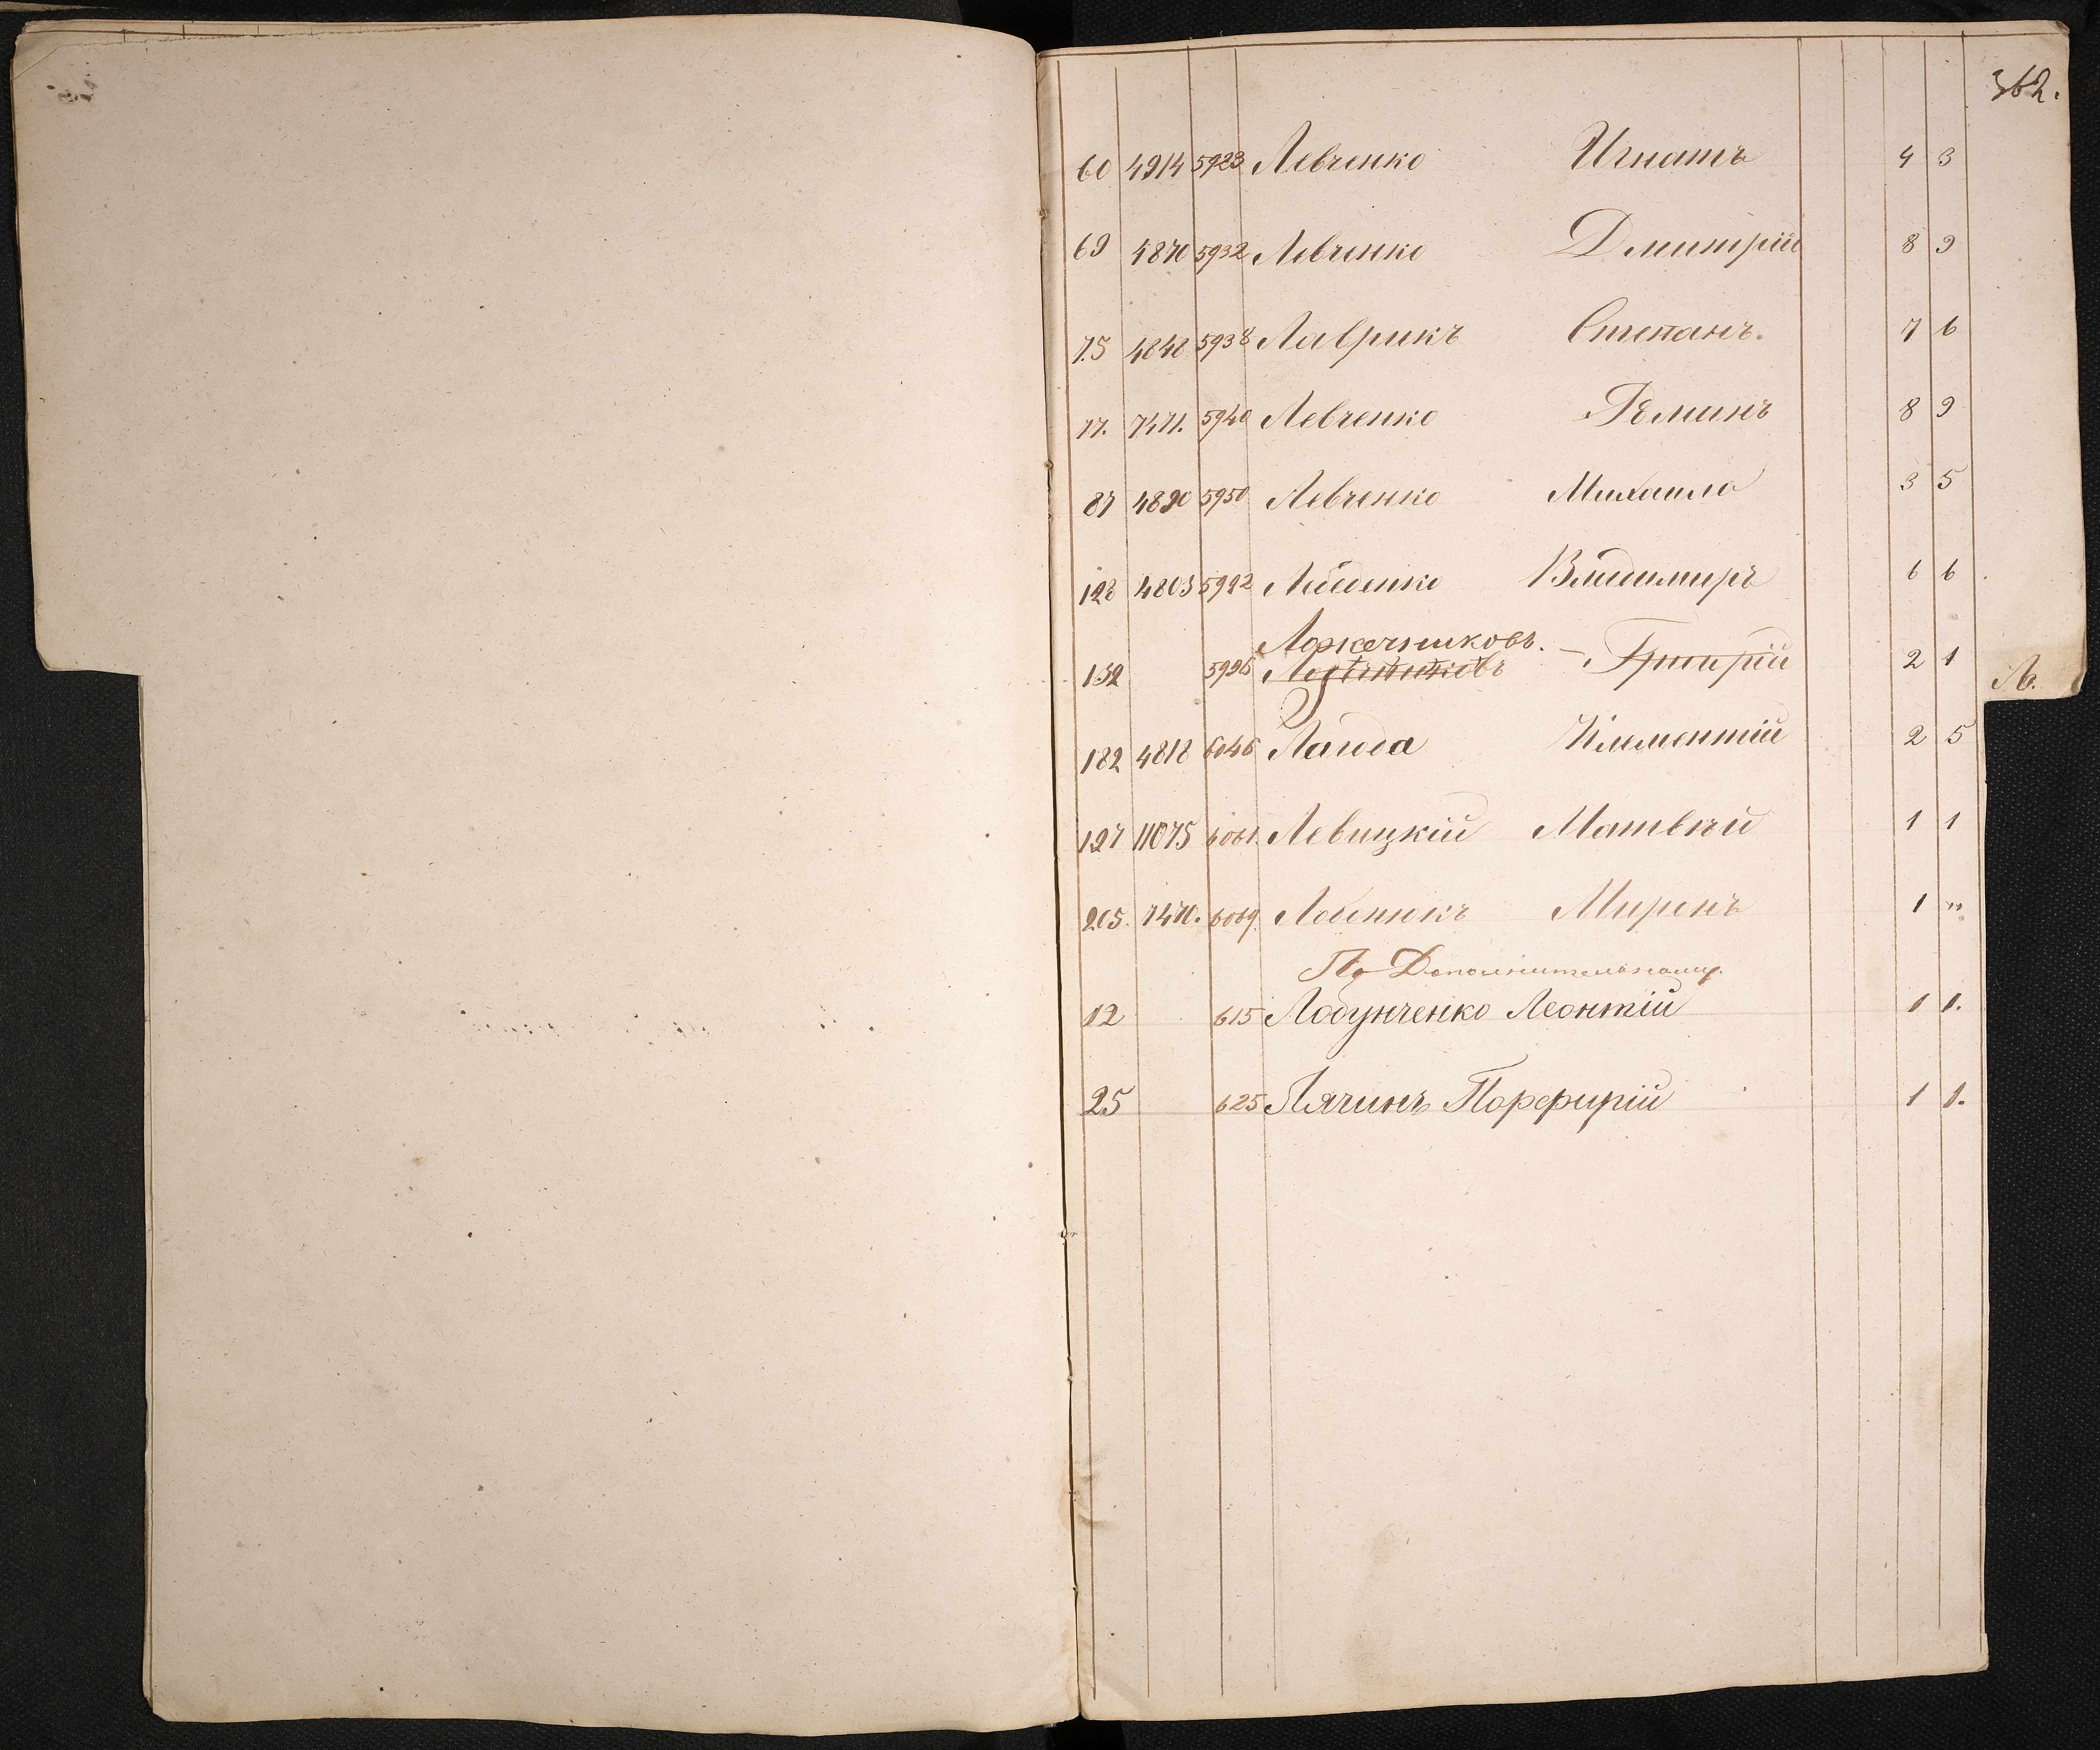 362.
60 4914 5923 Левченко Игнатъ 4 3
69 4870 5932 Левченко Дмитрій 8 9
75 4848 5938 Лаврикъ Степанъ. 7 6
77. 7471. 5940 Левченко 8 9
87 4890 5950 Левченко Михаило 3 5
128 4803 5992 Лебеденко Владимиръ 6 6
Ложечниковъ. –
132 5996 Григорій 2 1
Л.
182 4818 6046 Ланда Климентій 2 5
197 11075 6061. Левицкій Матвѣй 1 1
205. 7470. 6069. Миронъ 1 "
По Дополнительному.
12 615 Лобунченко Леонтій 1 1.
25 625 Лячинъ Порфирій 1 1.